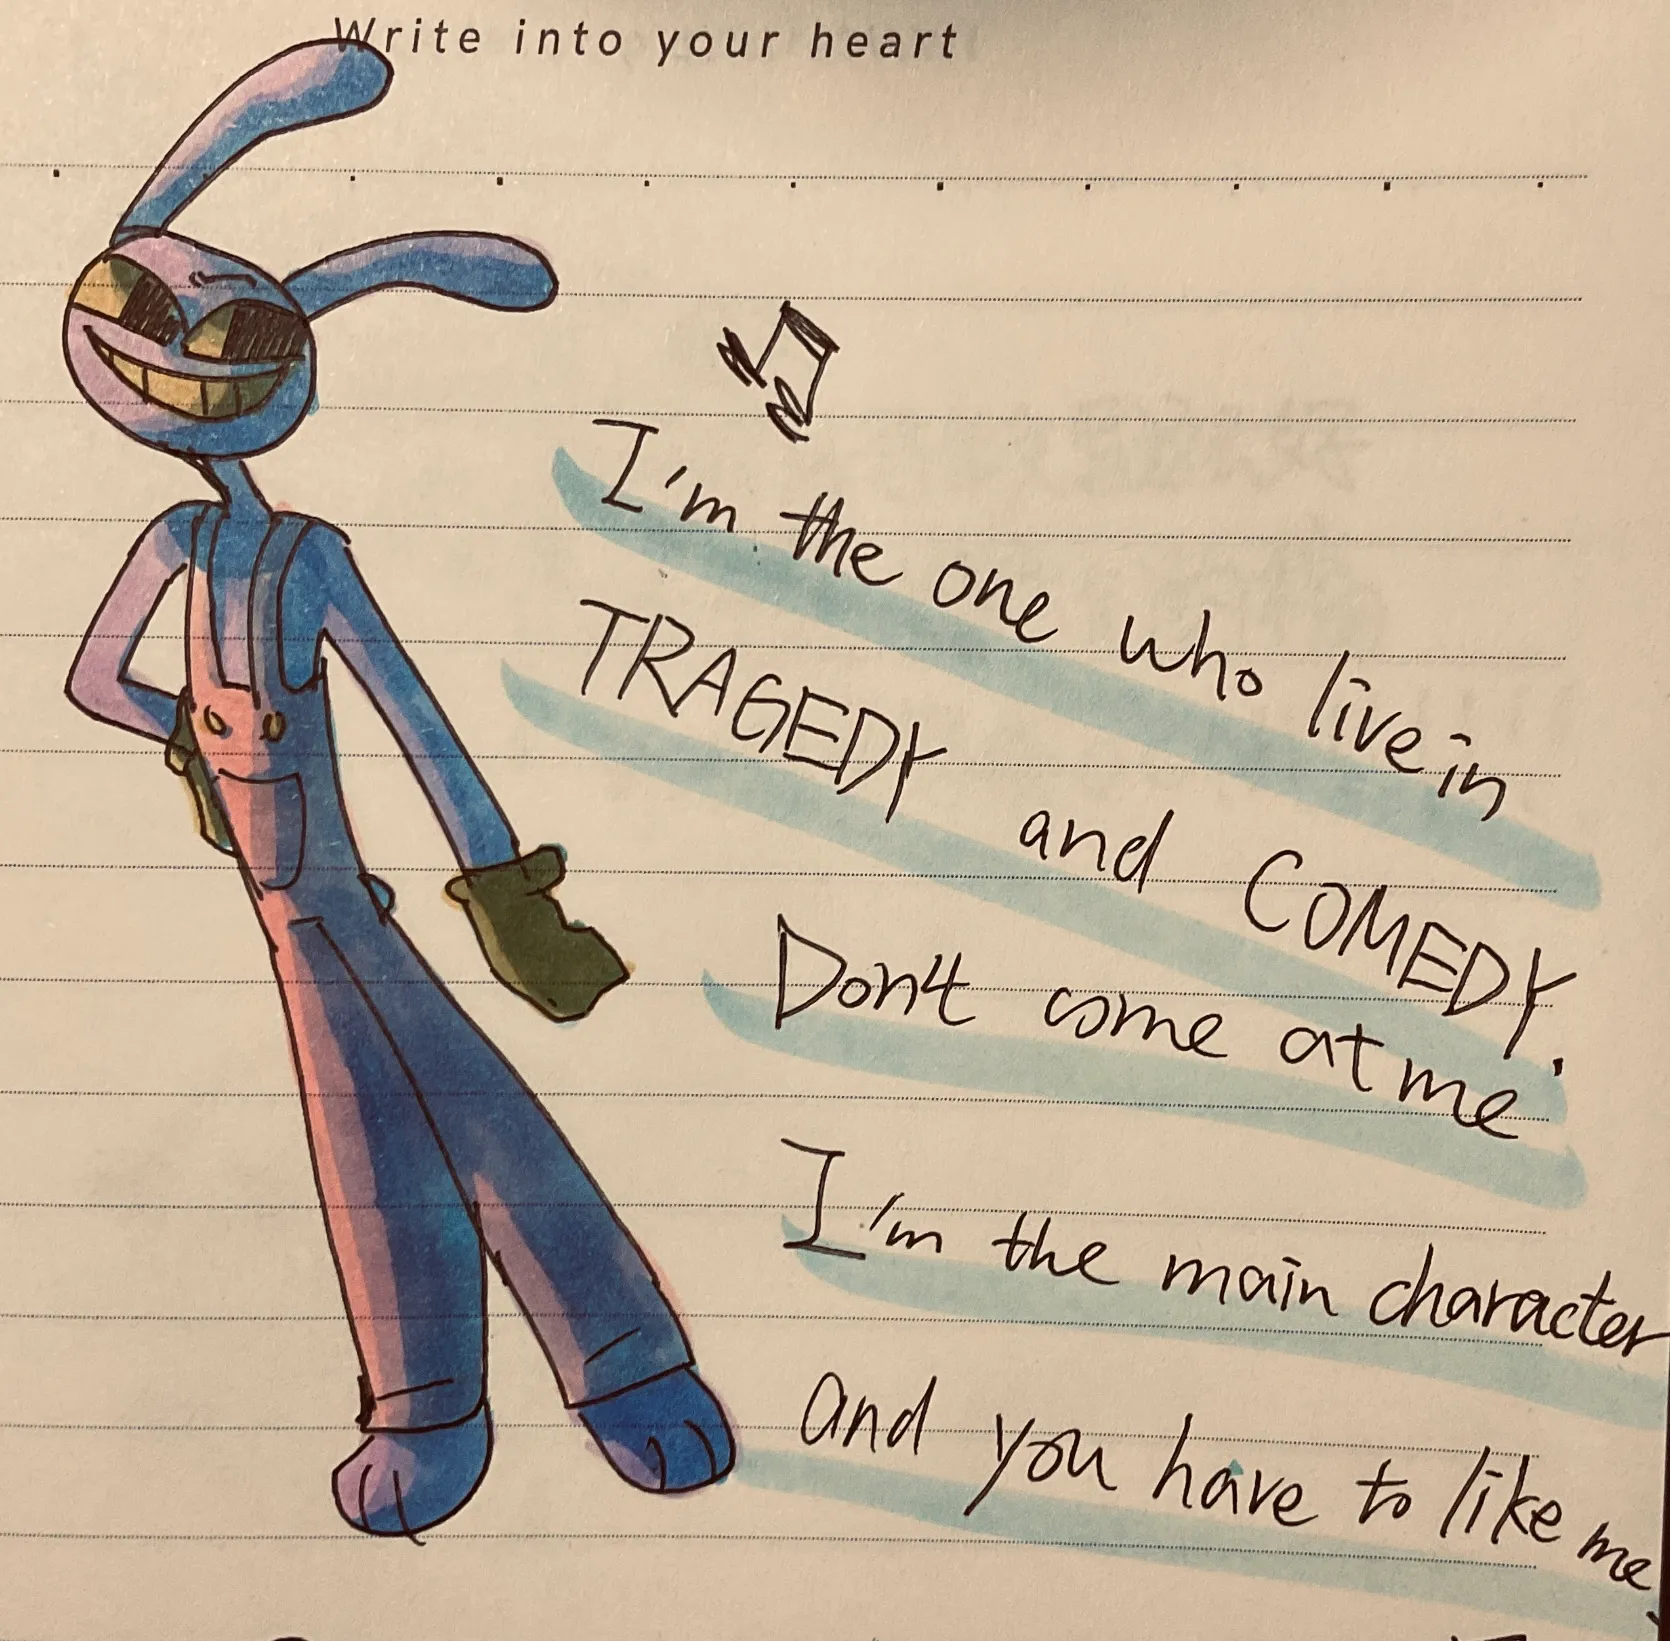 Write into your heart
I'm the one who live in
TRAGEDY and COMEDY.
Don't come at me
I'm the main character
and you have to like me,